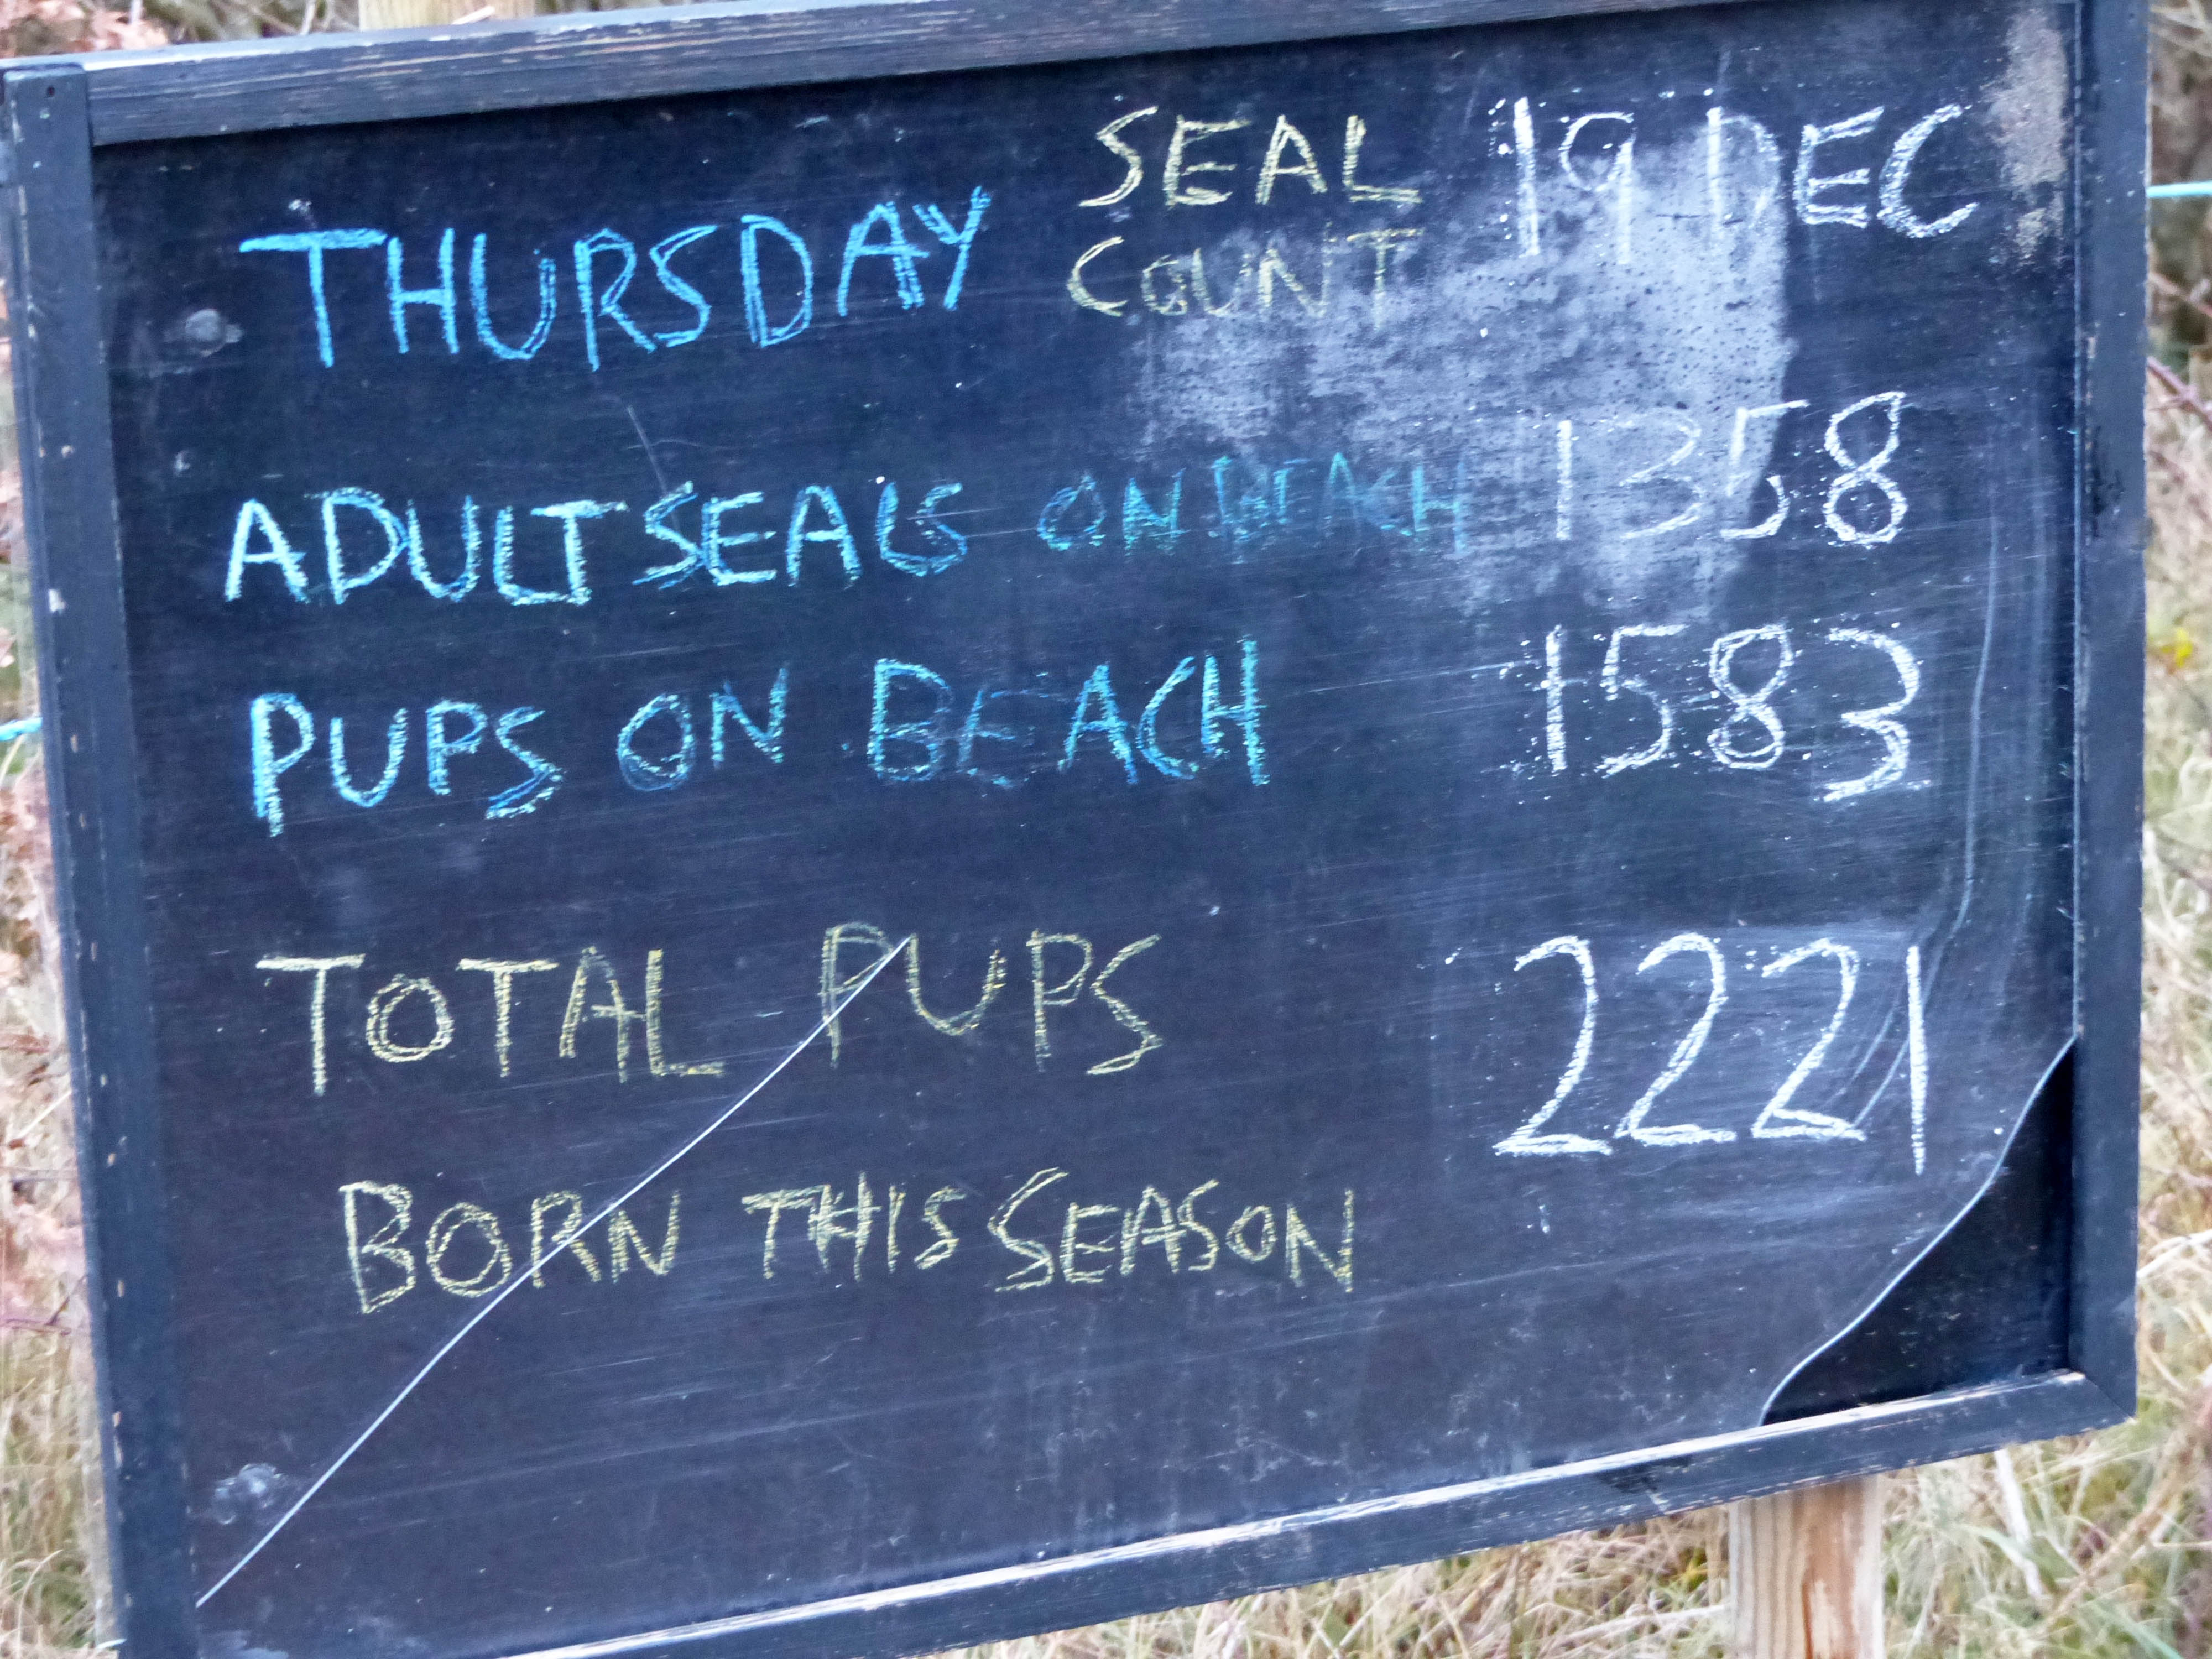 THURSDAY SEAL COUNT 19 DEC
ADULT SEALS ON BEACH 1358
PUPS ON BEACH 1583
TOTAL PUPS 2221
BORN THIS SEASON